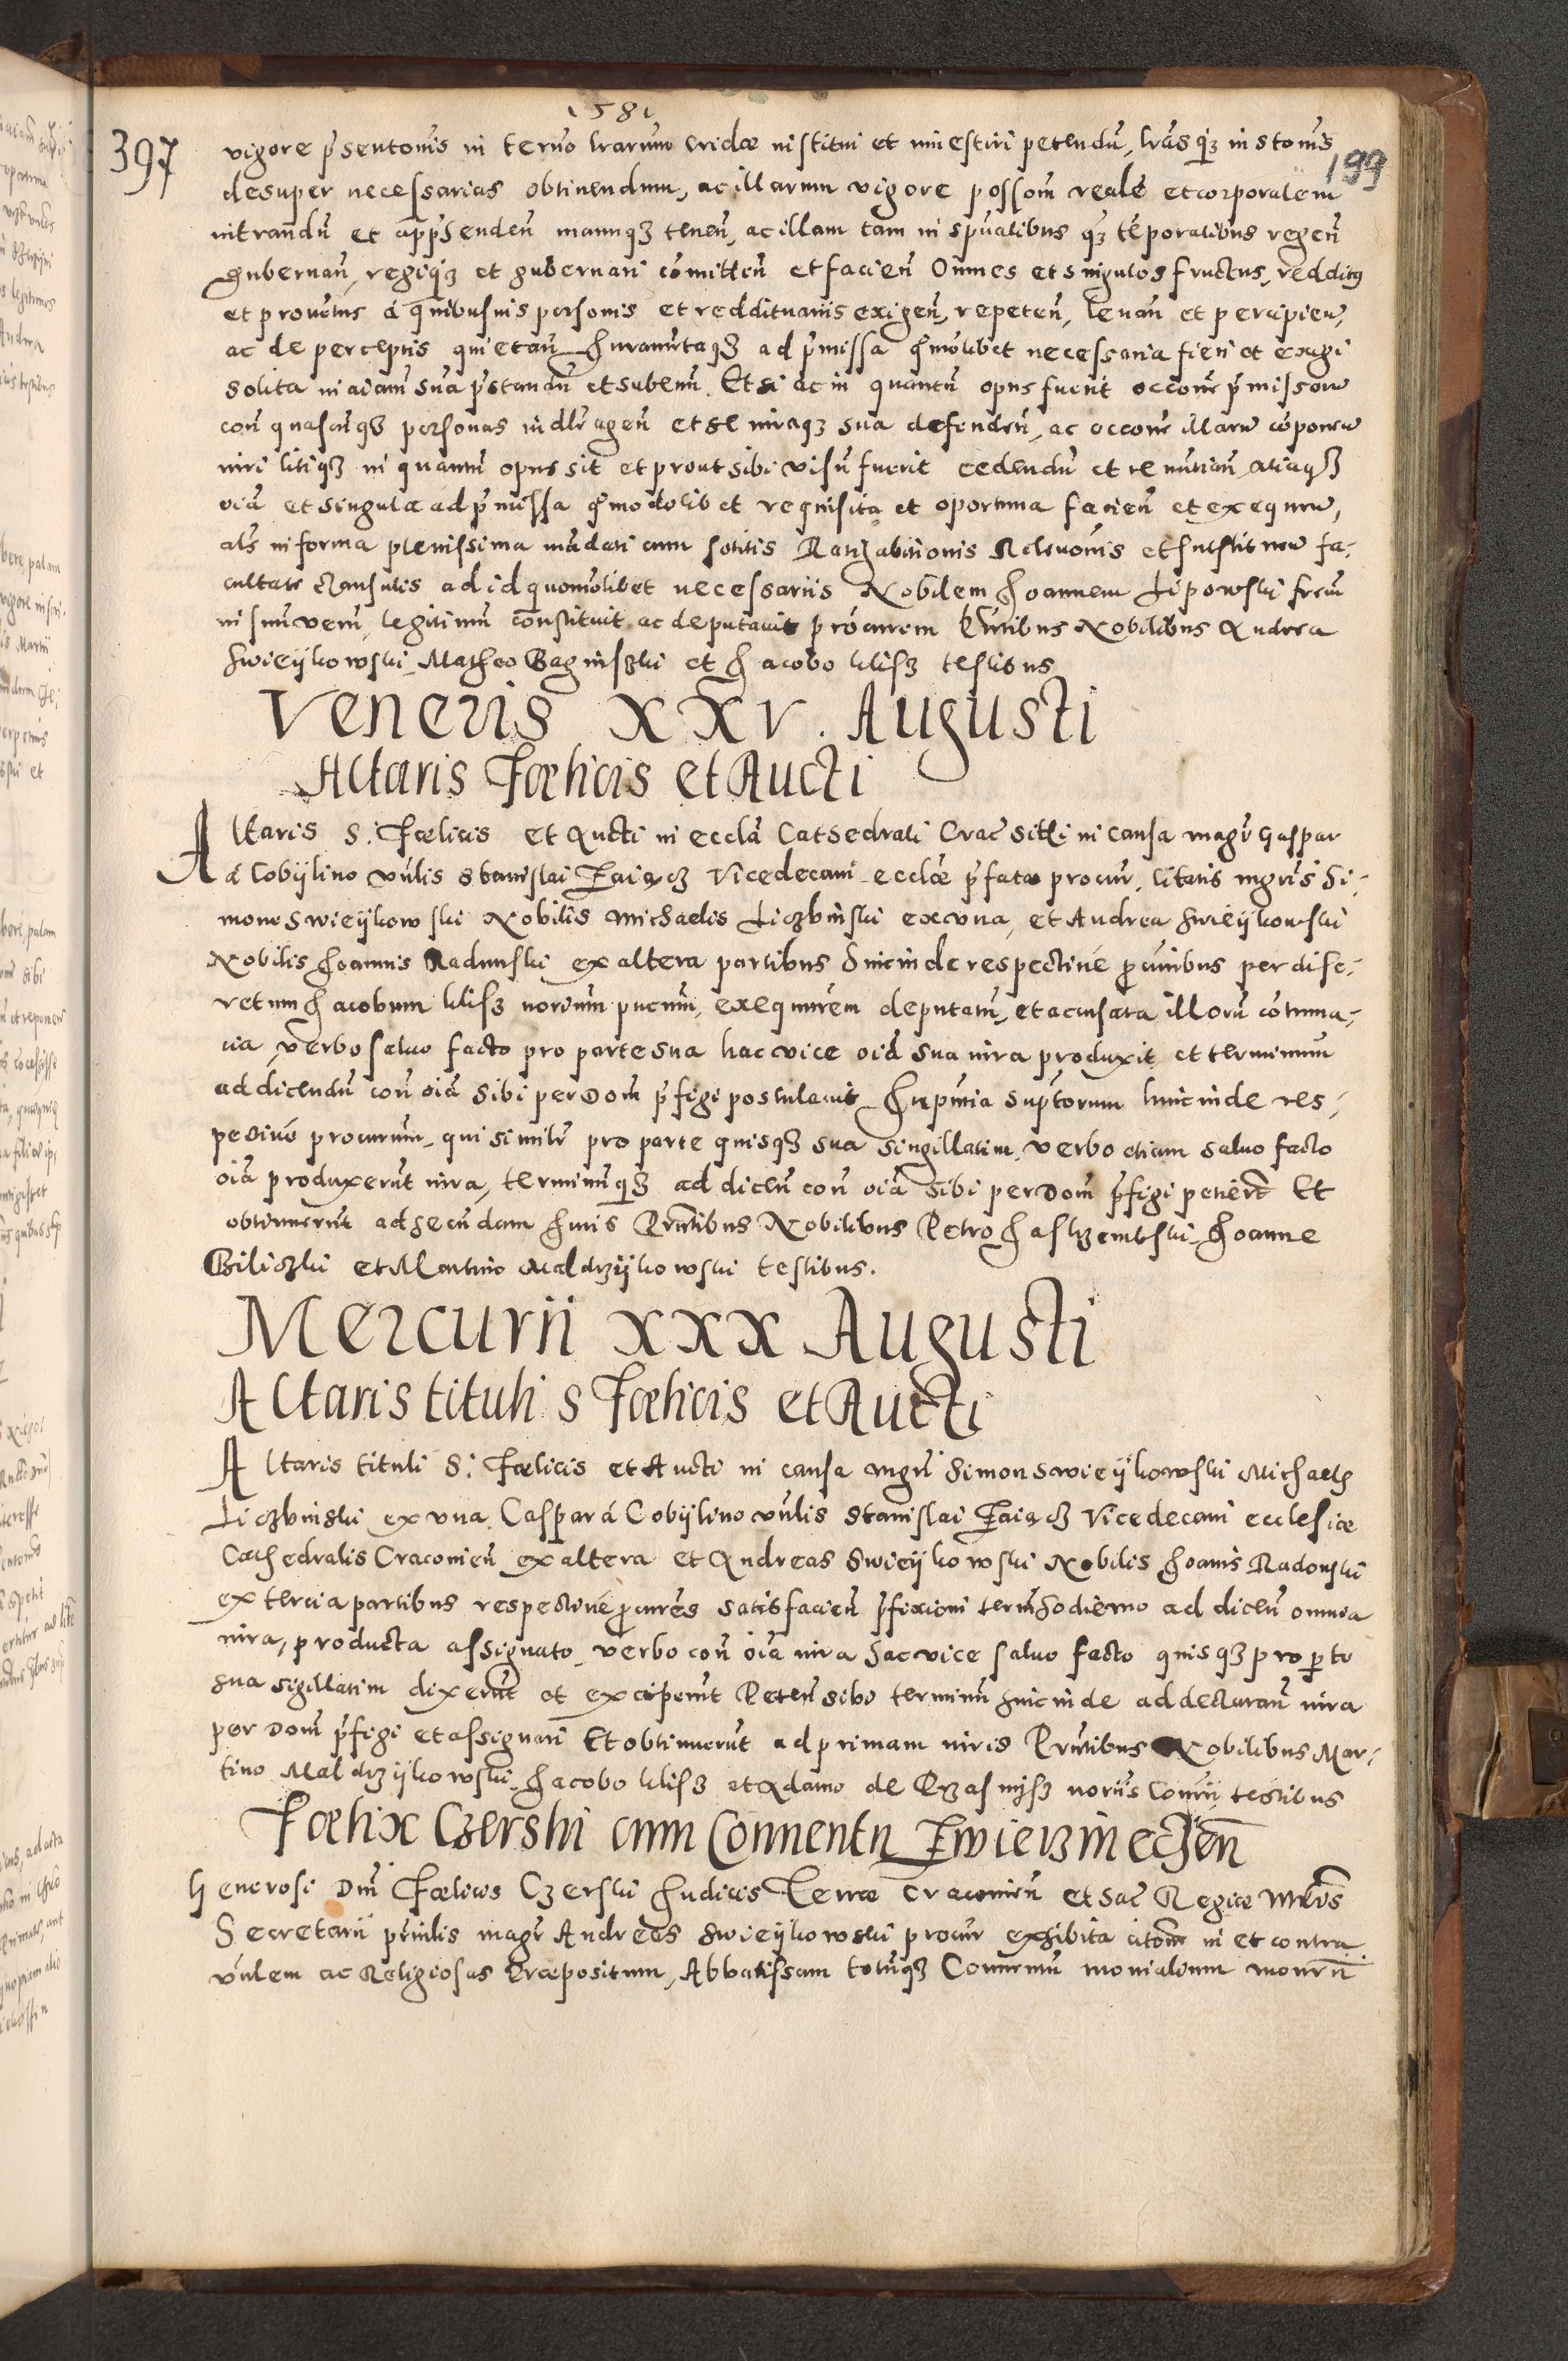 1581
397
199
vigore p̄sentõnis in termõ lrarum cridae institui et investiri petendũ, lras q̃ institõnis
desuper necessarias obtinendum, ac illarum vigore possom̃ realẽ et corporalem
intrandũ et app̃henden̄ manuq3 tenen̄, ac illam tam in sp̃ualibus q̃3 tẽporalibus regen̄
gubernan̄, regiq3 et gubernari cõmitten̄ et facien̄ Omnes et singulos fructus, redditus
et proventus à quibusuis personis et reddituariis exigen̄, repeten̄, levan̄ et percipien̄,
ac de perceptis quietan̄ Iuramentaq3 ad p̄missa quõmõlibet necessaria fieri et exigi
solita in aĩam sua p̄standũ et subeun̄. Et si ac in quantũ opus fuerit occõne p̄missorum
con̄ quascũq3 personas in dlr̃ agen̄ et se iuraq3 sua defenden̄, ac occõne illarum cõponen̄
iuri litiq3 in quantũ opus sit et prout sibi visũ fuerit cedendũ et renũtian̄ aliaq3
oĩa et singula ad p̄missa q̃modolibet requisita et oportuna facien̄ et exequen̄,
als̃ in forma plenissima mãdati cum solitis Ratihabitionis Relevõnis et substituen̄ fa-
cultate clausulis ad id quomõlibet necessariis Nobilem Joannem Lipowski frem̄
in suũ verũ, legitimũ constituit ac deputavit procurem P̃ntibus Nobilibus Andrea
Swieykowski, Matheo Baginski et Jacobo klis3 testibus
Veneris xxv. Augusti
Altaris Foelicis et Aucti
Altaris S. Foelicis et Aucti in eccla Cathedrali Crac̃ siti in causa magr̃i Gaspar
à Cobylino vn̄lis Stanislai Zaiącz Vicedecani ecclae p̄fatae procur̃, citatis mgrĩs Si-
mone Swieykowski Nobilis Michaelis Liczbinski ex una, et Andrea Swieykowski
Nobilis Joannis Radunski ex altera partibus hincinde respective p̃curibus per disc-
retum Jacobum klis3 notarium pucum̄, exequutrem deputatũ, et accusata illorũ cõtuma-
cia, verbo salvo facto pro parte sua hac vice oĩa sua iura produxit et terminum
ad dicendũ con̄ oĩa sibi per Dom̄ p̄figi postulavit In p̃ntia sup̃torum hincinde res-
pective procurum̄, qui similr̃ pro parte quisq3 sua singillatim, verbo etiam salvo facto
oĩa produxerũt iura, terminũq3 ad dicen̄ con̄ oĩa sibi per Dom̄ p̄figi petierũt Et
obtinuerũt ad secundam Juris P̃ntibus Nobilibus Petro Jastrzembski, Joanne
Biliczki et Martino Maldrzykowski testibus.
Mercurii xxx Augusti
Altaris tituli S Foelicis et Aucti
Altaris tituli S. Foelicis et Aucti in causa mgrĩ Simon Swieykowski Michaelis
Liczbinski ex una Caspar à Cobylino vn̄lis Stanislai Zaiącz Vicedecani ecclesiae
Cathedralis Cracovien̄ ex altera et Andreas Swieykowski Nobilis Joannis Radonski
ex tercia partibus respective p̃cures satisfacien̄ p̄fixioni term̄ hodierno ad dicen̄ omnia
iura, producta assignato, verbo con̄ oĩa iura hac vice salvo facto quisq3 pro parte
sua sigillatim dixerũt et exceperunt Peten̄ sibi terminũ hincinde ad declaran̄ iura
per Dom̄ p̄figi et assignari Et obtinuerũt ad primam iuris P̃ntibus Nobilibus Mar-
tino Maldrzykowski, Jacobo klis3 et Adamo de Przasmys3 noriis Convii testibus
Foelix Czerski cum Conventu Zwierzinecen̄
Generosi Dni Foelicis Czerski Judicis Terrae Cracovien̄ et Sac̃ Regiae Mtt̃is
Secretarii principalis magr̃ Andreas Swieykowski procur̃ exhibita citõne in et contra
vn̄lem ac Religiosas Praepositum, Abbatissam totũq3 Conventũ monialium monrĩi